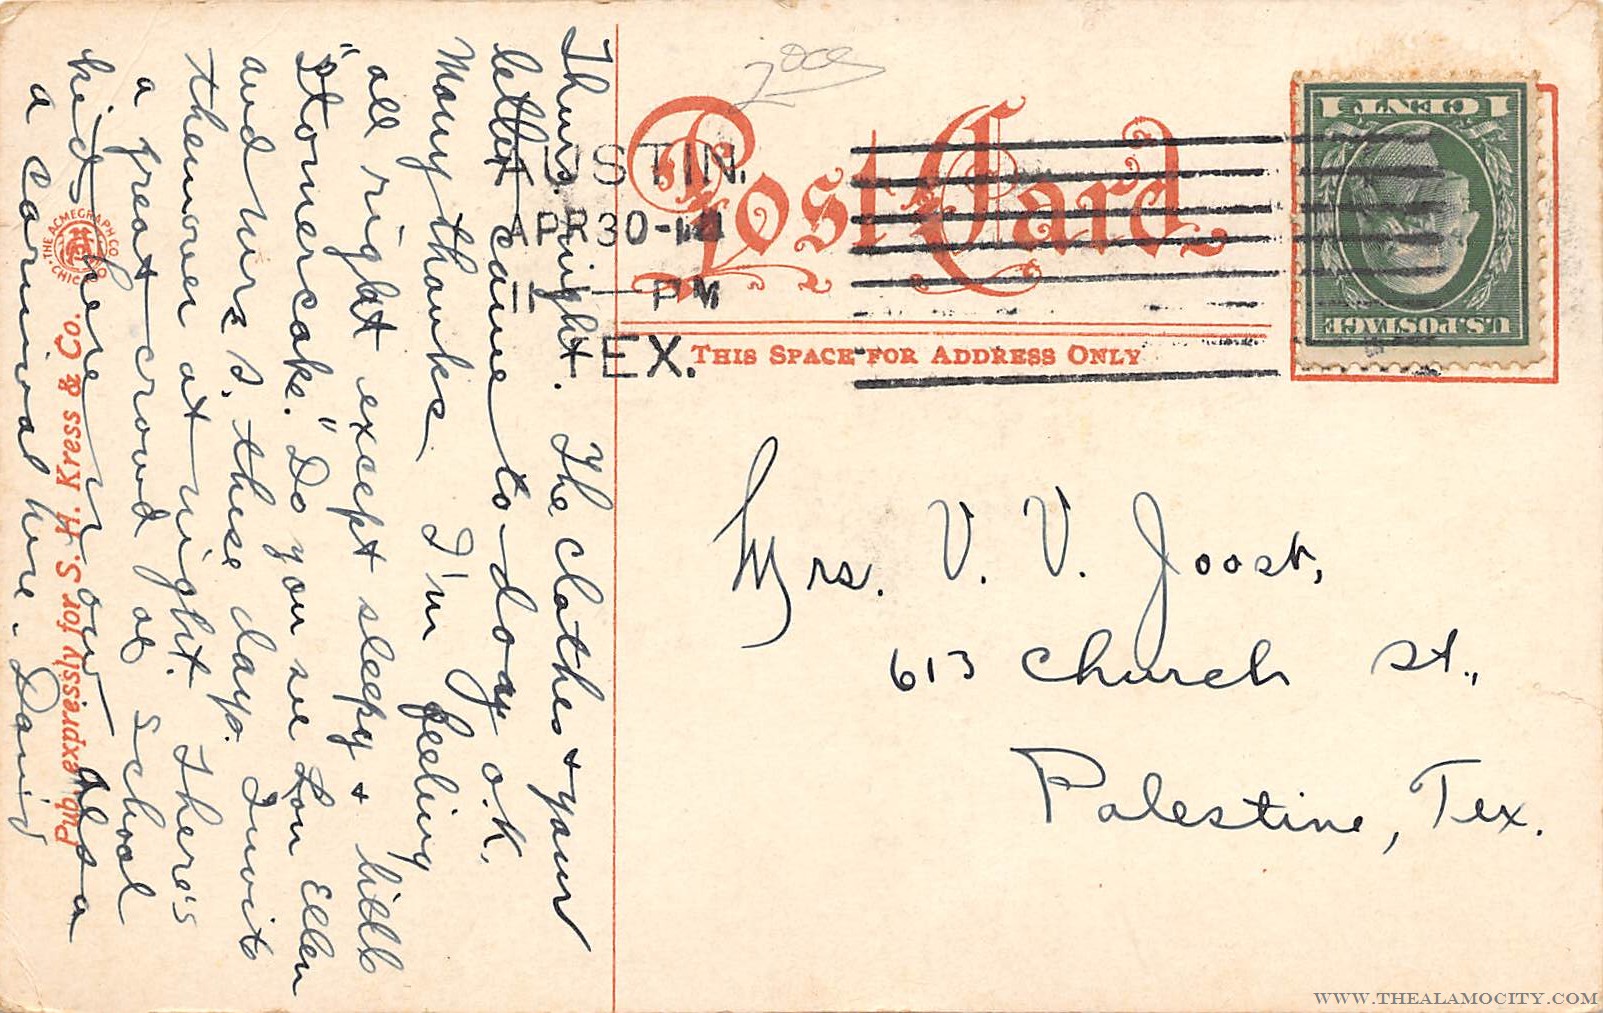 Thurs. night. The clothes & your
letter came to-day O.K.
Many thanks. I'm feeling
all right except sleepy & little
"stomercake." Do you see Lou Ellen
and Mrs S. these days. Invite
them over at night. There's
a great crowd of school
kids here now. Also a
a carnival here. David
THE ACMEGRAPH CO.
CHICAGO
Pub. expressly for S. H. Kress & Co.
Post Card
AUSTIN.
APR 30
11 PM
TEX.
THIS SPACE FOR ADDRESS ONLY
U.S. POSTAGE
1 CENT 1
Mrs. V. V. Joost,
613 Church St.,
Palestine, Tex.
WWW.THEALAMOCITY.COM